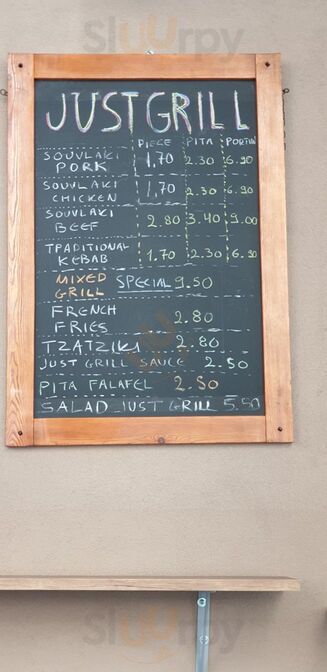 Sluurpy
JUST GRILL
PIECE PITA PORTION
SOUVLAKI PORK 1,70 2.30 6.90
SOUVLAKI CHICKEN 1,70 2.30 6.90
SOUVLAKI BEEF 2.80 3.40 9.00
TRADITIONAL KEBAB 1.70 2.30 6.90
MIXED GRILL SPECIAL 9.50
FRENCH FRIES 2.80
TZATZIKI 2.80
JUST GRILL SAUCE 2.50
PITA FALAFEL 2.50
SALAD JUST GRILL 5.50
Sluurpy